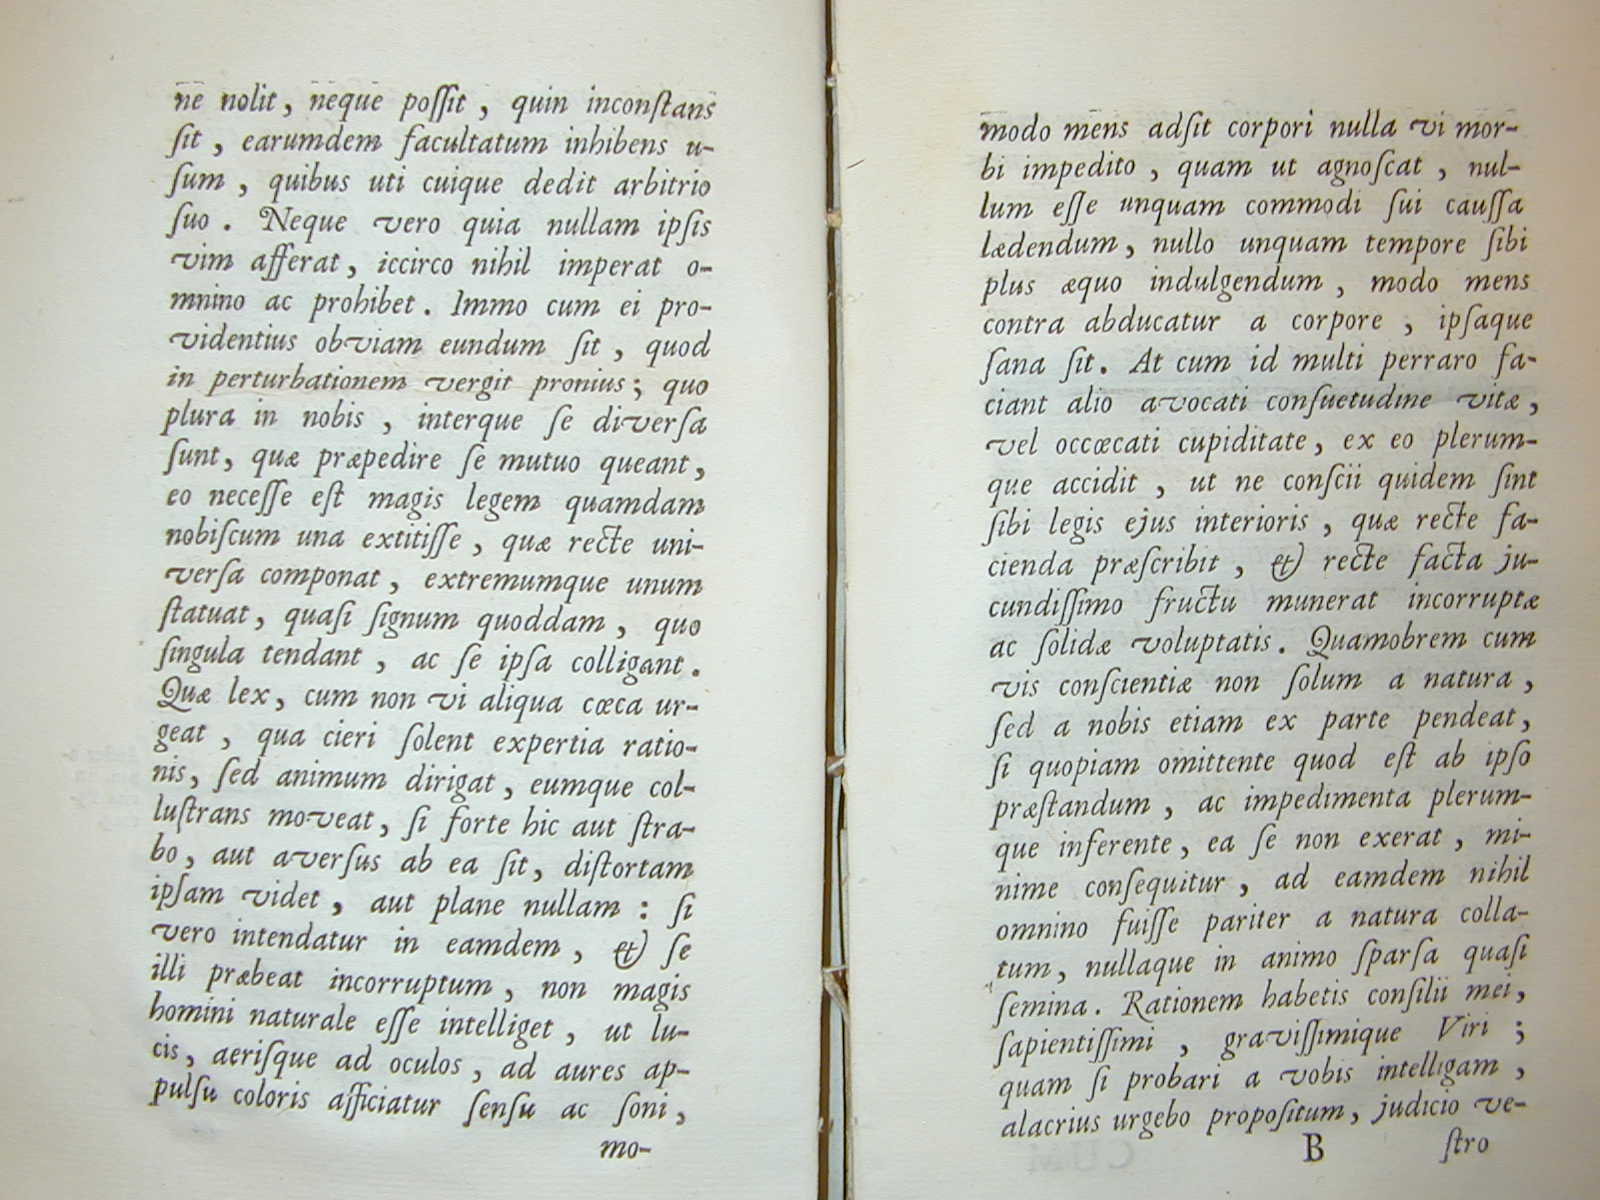 ne nolit, neque poſſit, quin inconſtans
ſit, earumdem facultatum inhibens u-
ſum, quibus uti cuique dedit arbitrio
ſuo. Neque vero quia nullam ipſis
vim afferat, iccirco nihil imperat o-
mnino ac prohibet. Immo cum ei pro-
videntius obviam eundum ſit, quod
in perturbationem vergit pronius; quo
plura in nobis, interque ſe diverſa
ſunt, quæ præpedire ſe mutuo queant,
eo neceſſe eſt magis legem quamdam
nobiſcum una extitiſſe, quæ recte uni-
verſa componat, extremumque unum
ſtatuat, quaſi ſignum quoddam, quo
ſingula tendant, ac ſe ipſa colligant.
Quæ lex, cum non vi aliqua cœca ur-
geat, qua cieri ſolent expertia ratio-
nis, ſed animum dirigat, eumque col-
luſtrans moveat, ſi forte hic aut ſtra-
bo, aut averſus ab ea ſit, diſtortam
ipſam videt, aut plane nullam: ſi
vero intendatur in eamdem, & ſe
illi præbeat incorruptum, non magis
homini naturale eſſe intelliget, ut lu-
cis, aeriſque ad oculos, ad aures ap-
pulſu coloris afficiatur ſenſu ac ſoni,
mo-
modo mens adſit corpori nulla vi mor-
bi impedito, quam ut agnoſcat, nul-
lum eſſe unquam commodi ſui cauſſa
lædendum, nullo unquam tempore ſibi
plus æquo indulgendum, modo mens
contra abducatur a corpore, ipſaque
ſana ſit. At cum id multi perraro fa-
ciant alio avocati conſuetudine vitæ,
vel occœcati cupiditate, ex eo plerum-
que accidit, ut ne conſcii quidem ſint
ſibi legis ejus interioris, quæ recte fa-
cienda præſcribit, & recte facta ju-
cundiſſimo fructu munerat incorruptæ
ac ſolidæ voluptatis. Quamobrem cum
vis conſcientiæ non ſolum a natura,
ſed a nobis etiam ex parte pendeat,
ſi quopiam omittente quod eſt ab ipſo
præſtandum, ac impedimenta plerum-
que inferente, ea ſe non exerat, mi-
nime conſequitur, ad eamdem nihil
omnino fuiſſe pariter a natura colla-
tum, nullaque in animo ſparſa quaſi
ſemina. Rationem habetis conſilii mei,
ſapientiſſimi, graviſſimique Viri;
quam ſi probari a vobis intelligam,
alacrius urgebo propoſitum, judicio ve-
B ſtro